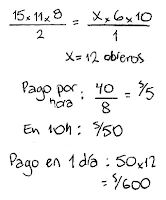 15×11×8/2 = X×6×10/1
X=12 obreros
Pago por hora: 40/8 = S/5
En 10h: S/50
Pago en 1 día: 50×12
= S/600